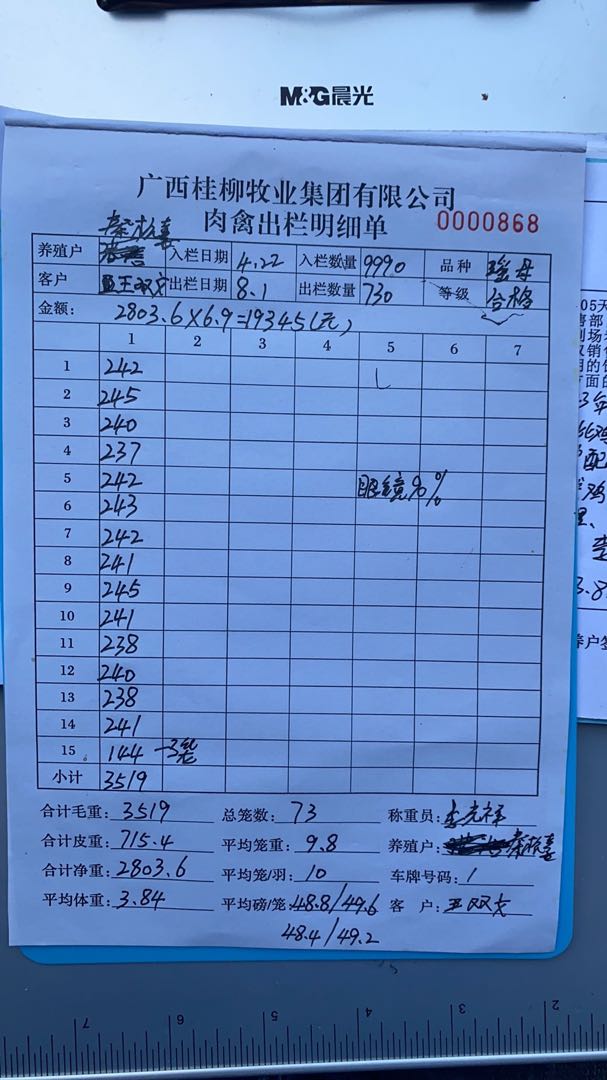 M&G晨光
广西桂柳牧业集团有限公司
肉禽出栏明细单 0000868
养殖户 入栏日期 4.22 入栏数量 9990 品种 瑶母
客户 王双 出栏日期 8.1 出栏数量 730 等级 合格
金额: 2803.6×6.9=19345(元)
1 2 3 4 5 6 7
1 242
2 245
3 240
4 237
5 242 眼镜%%
6 243
7 242
8 241
9 245
10 241
11 238
12 240
13 238
14 241
15 144 一3笼
小计 3519
合计毛重: 3519 总笼数: 73 称重员: 李光祥
合计皮重: 715.4 平均笼重: 9.8 养殖户:
合计净重: 2803.6 平均笼/羽: 10 车牌号码: 1
平均体重: 3.84 平均磅/笼: 48.8/49.6 客户: 王双
48.4/49.2
7 6 5 4 3 2